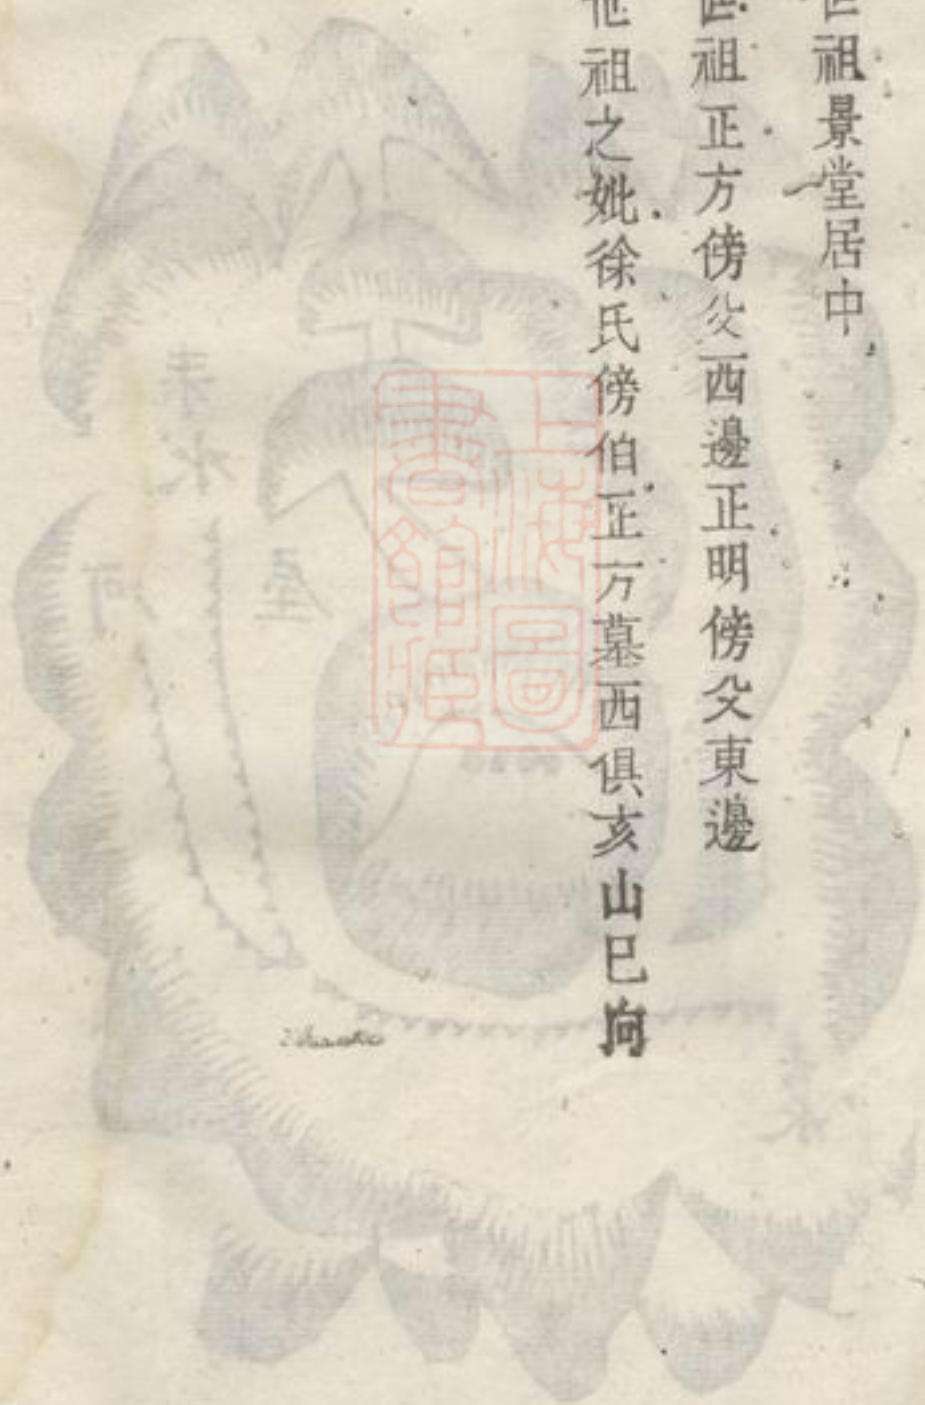 世祖景堂居中
世祖正方傍父西邊正明傍父東邊
世祖之妣徐氏傍伯正方墓西俱亥山巳向
上海圖書館藏
來水
屋